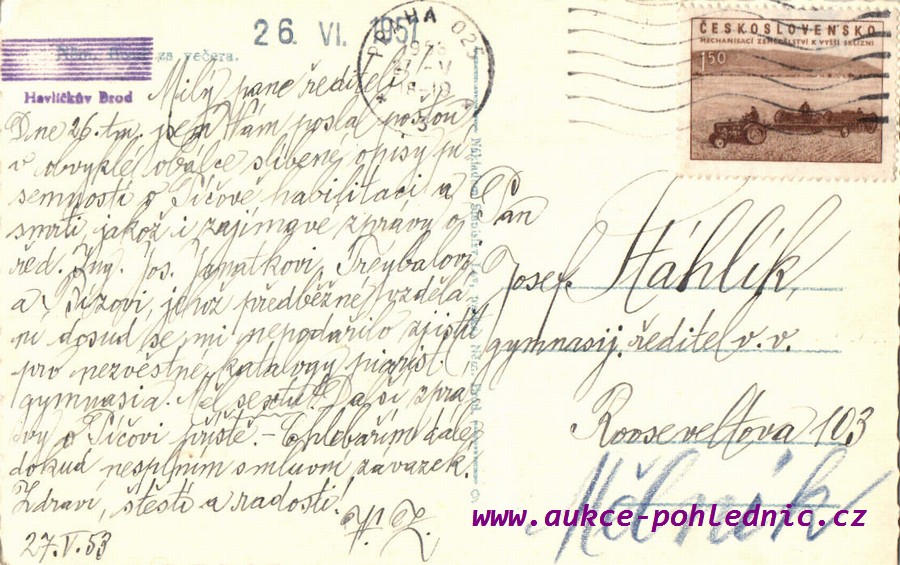 26 VI. 1951
Něm. Brod za večera.
Havlíčkův Brod
PRAHA 025
ČESKOSLOVENSKO
MECHANISACÍ ZEMĚDĚLSTVÍ K VYŠŠÍ SKLIZNI
1,50
Milý pane řediteli,
Dne 26. tm. jsem Vám poslal poštou
v obvyklé obálce slíbené opisy pí-
semností o Tíčově habilitaci a
smrti jakož i zajímavé zprávy o
řed. Ing. Jos. Janatkovi, Treybalovi
a Tízovi, jehož předběžné vzdělá-
ní dosud se mi nepodařilo zjistit
pro nezvěstné katalogy piarist.
gymnasia. Měl sextu! Další zprá-
vy o Tíčovi příště. – Chlebařím dále
dokud nesplním smluvní závazek.
Zdraví, štěstí a radosti!
27.V.53
Pan
Josef Háhlík,
gymnasij. ředitel v. v.
Rooseveltova 103
Mělník
www.aukce-pohlednic.cz